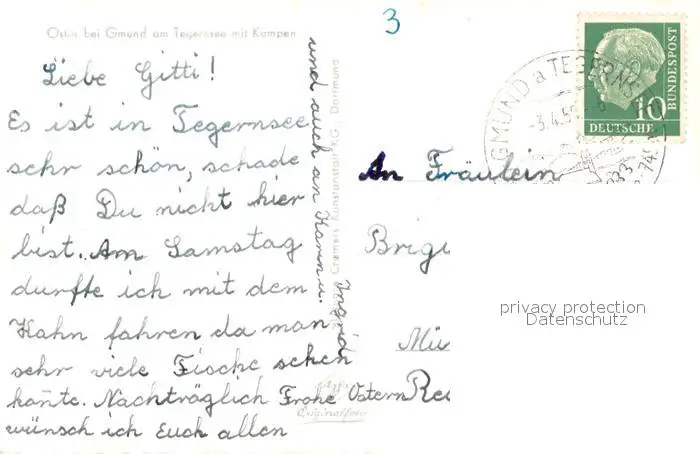 3
Ostin bei Gmund am Tegernsee mit Kampen
Liebe Gitti!
Es ist in Tegernsee
sehr schön, schade
daß Du nicht hier
bist. Am Samstag
durfte ich mit dem
Kahn fahren da man
sehr viele Fische sehen
kante. Nachträglich Frohe Ostern
wünsch ich Euch allen
und auch an Karin u. Ingrid
Cramers Kunstanstalt KG., Dortmund
Originalfoto
DEUTSCHE
BUNDESPOST
10
GMUND a TEGERNS
-3.4.5
An Fräulein
Brigi
Mü
Re
privacy protection
Datenschutz